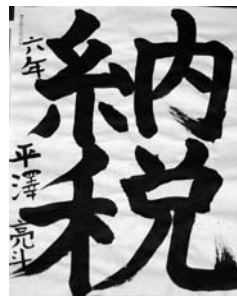 納税
六年 平澤 亮斗